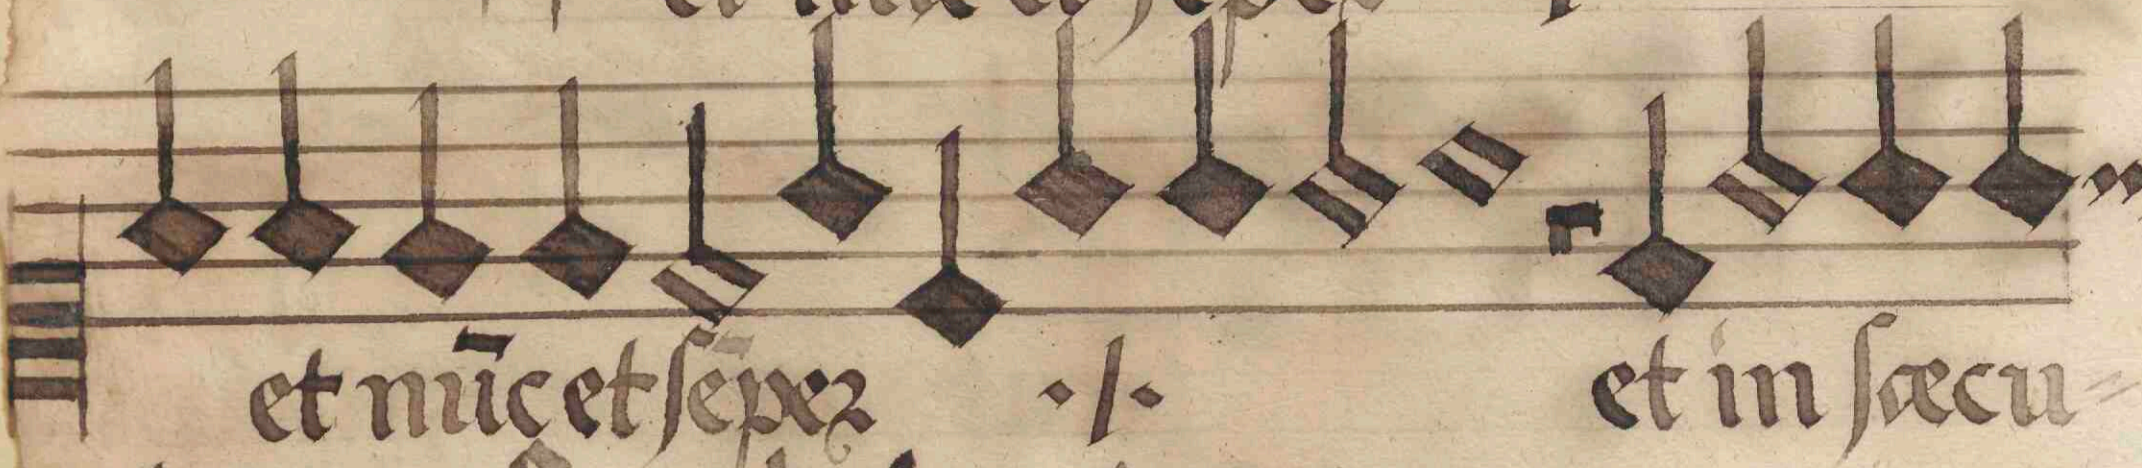 et nūc et ſēper ·/· et in ſæcu